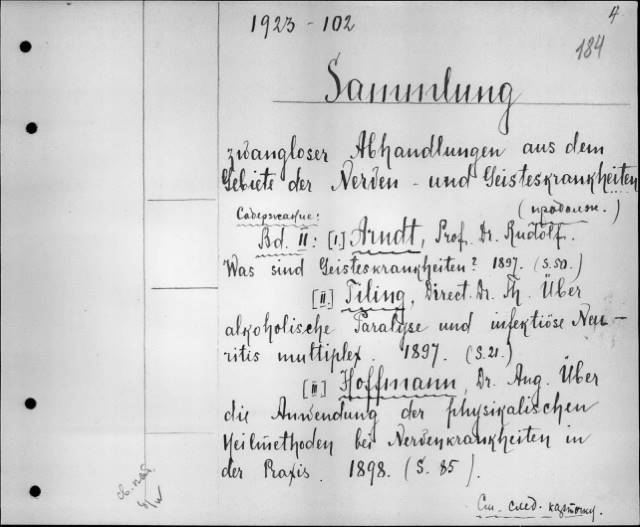 4
1923 - 102
184
Sammlung
zwangloser Abhandlungen aus dem
Gebiete der Nerven- und Geisteskrankheiten
(продолж.)
Содержание:
Bd. II: [I] Arndt, Prof. Dr. Rudolf.
Was sind Geisteskrankheiten? 1897. (S.50.)
[II] Tiling, Direct. Dr. Th. Über
alkoholische Paralyse und infektiöse Neu-
ritis multiplex. 1897. (S.21.)
[III] Hoffmann, Dr. Aug. Über
die Anwendung der physikalischen
Heilmethoden bei Nervenkrankheiten in
der Praxis. 1898. (S. 85).
См. след. карточку.